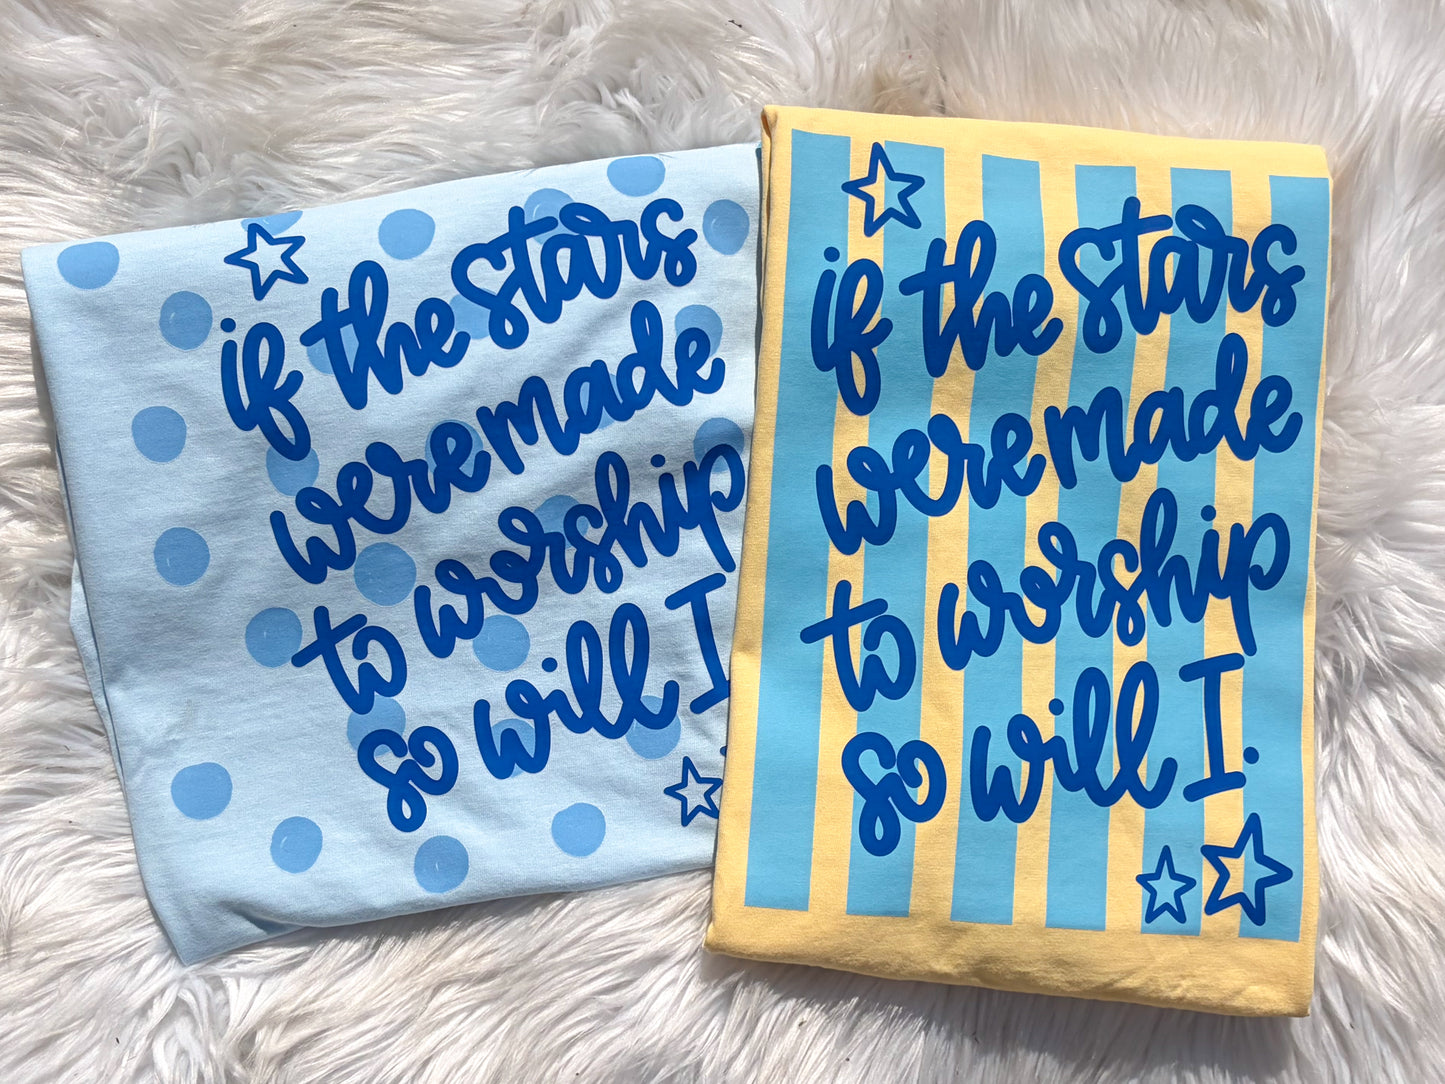 if the stars
were made
to worship
so will I
if the stars
were made
to worship
so will I.